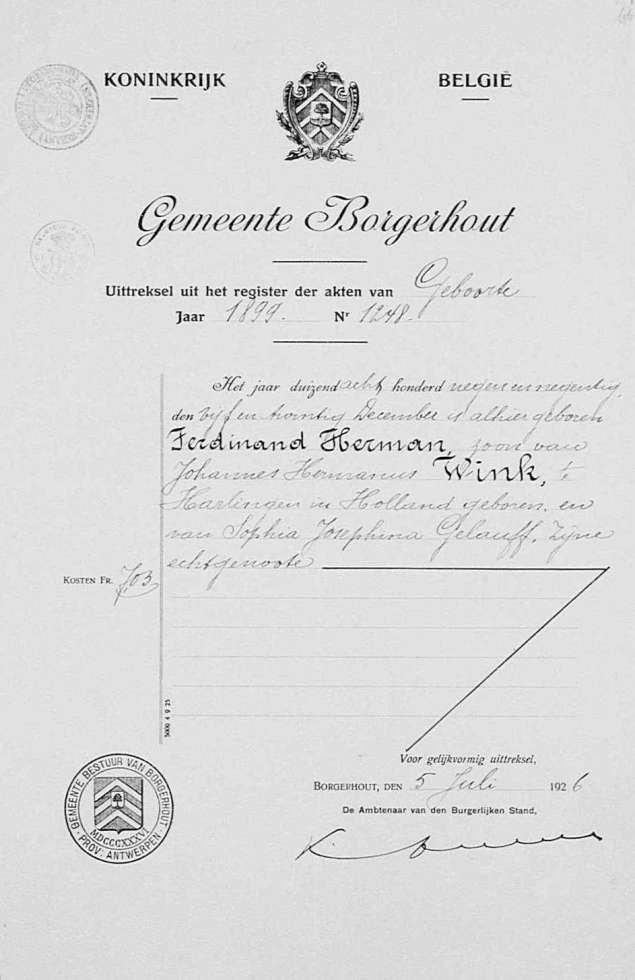 KONINKRIJK BELGIË
Gemeente Borgerhout
Uittreksel uit het register der akten van Geboorte
Jaar 1899. Nr 1248.
Het jaar duizend acht honderd negen en negentig,
den vijf en twintig December is alhier geboren
Ferdinand Herman, zoon van
Johannes Hermanus Wink, te
Harlingen in Holland geboren, en
van Sophia Josephina Gelauff, zijne
echtgenoote
KOSTEN FR.
5000 4 9 25
Voor gelijkvormig uittreksel,
BORGERHOUT, DEN 5 Juli 1926
De Ambtenaar van den Burgerlijken Stand,
GEMEENTE BESTUUR VAN BORGERHOUT
MDCCCXXXVI
PROV: ANTWERPEN